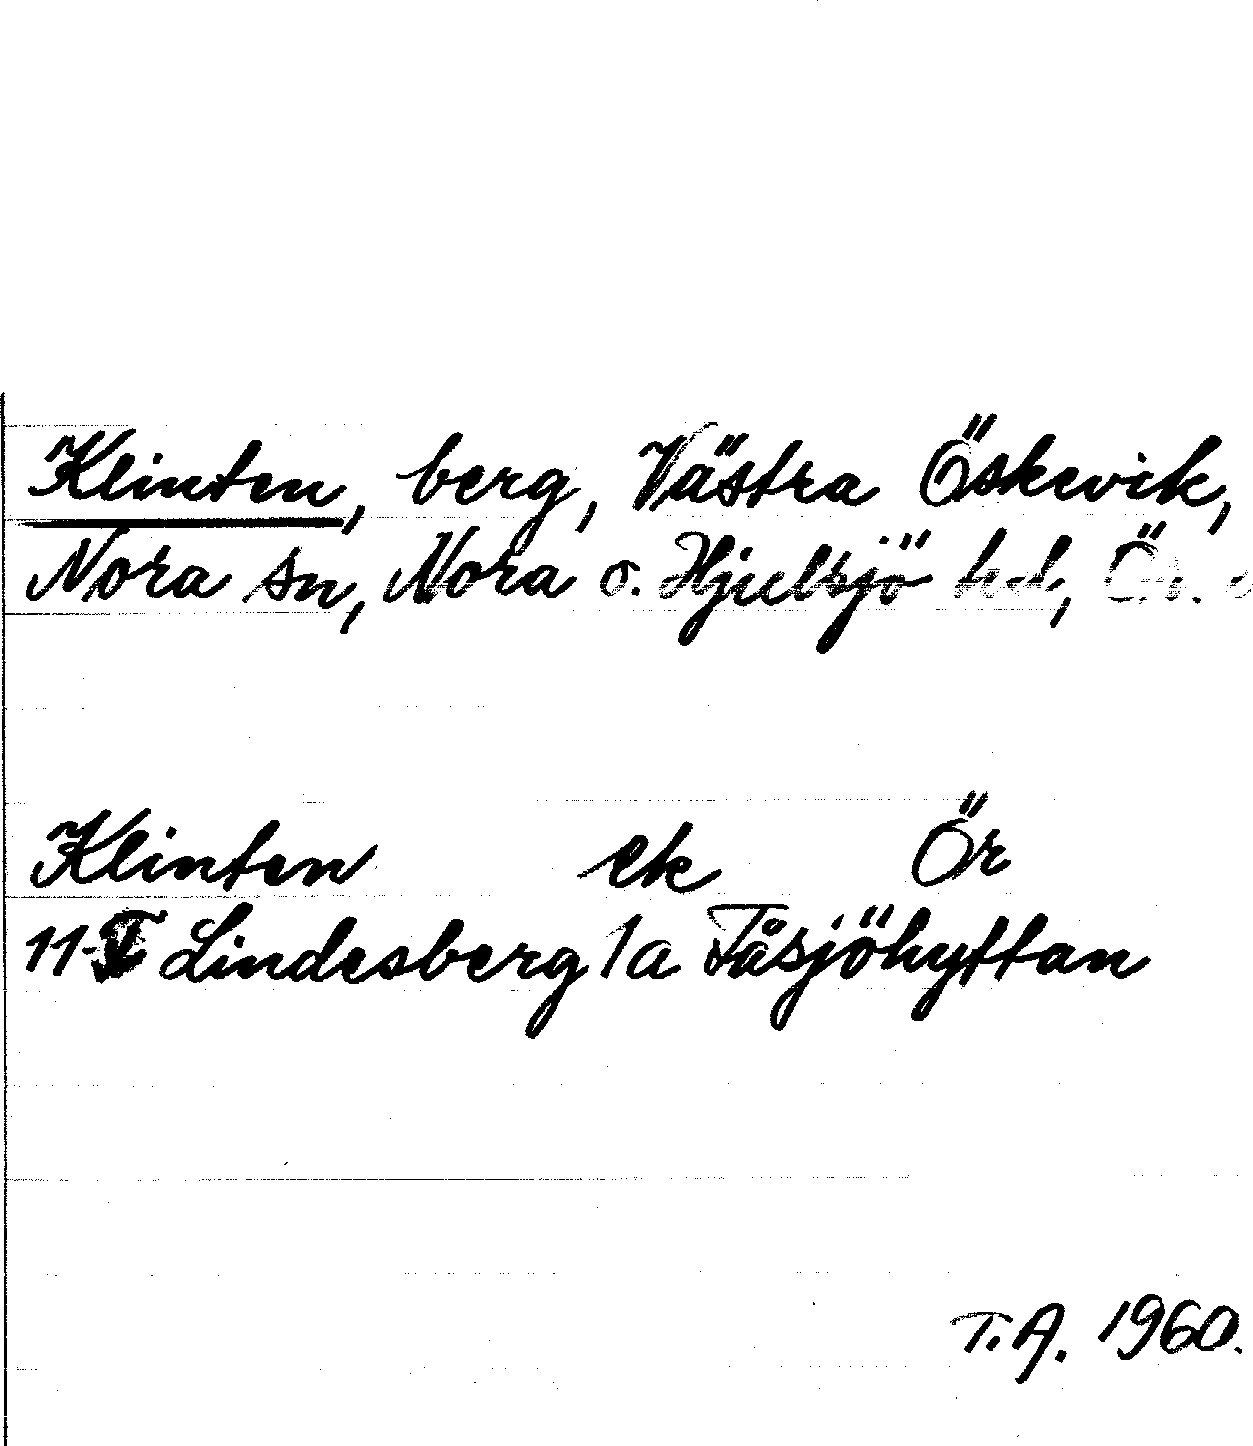 Klinten, berg, Västra Öskevik,
Nora sn, Nora o. Hjulsjö hd, Ör.
Klinten ek Ör
11F Lindesberg 1a Tåsjöhyttan
T.A. 1960.